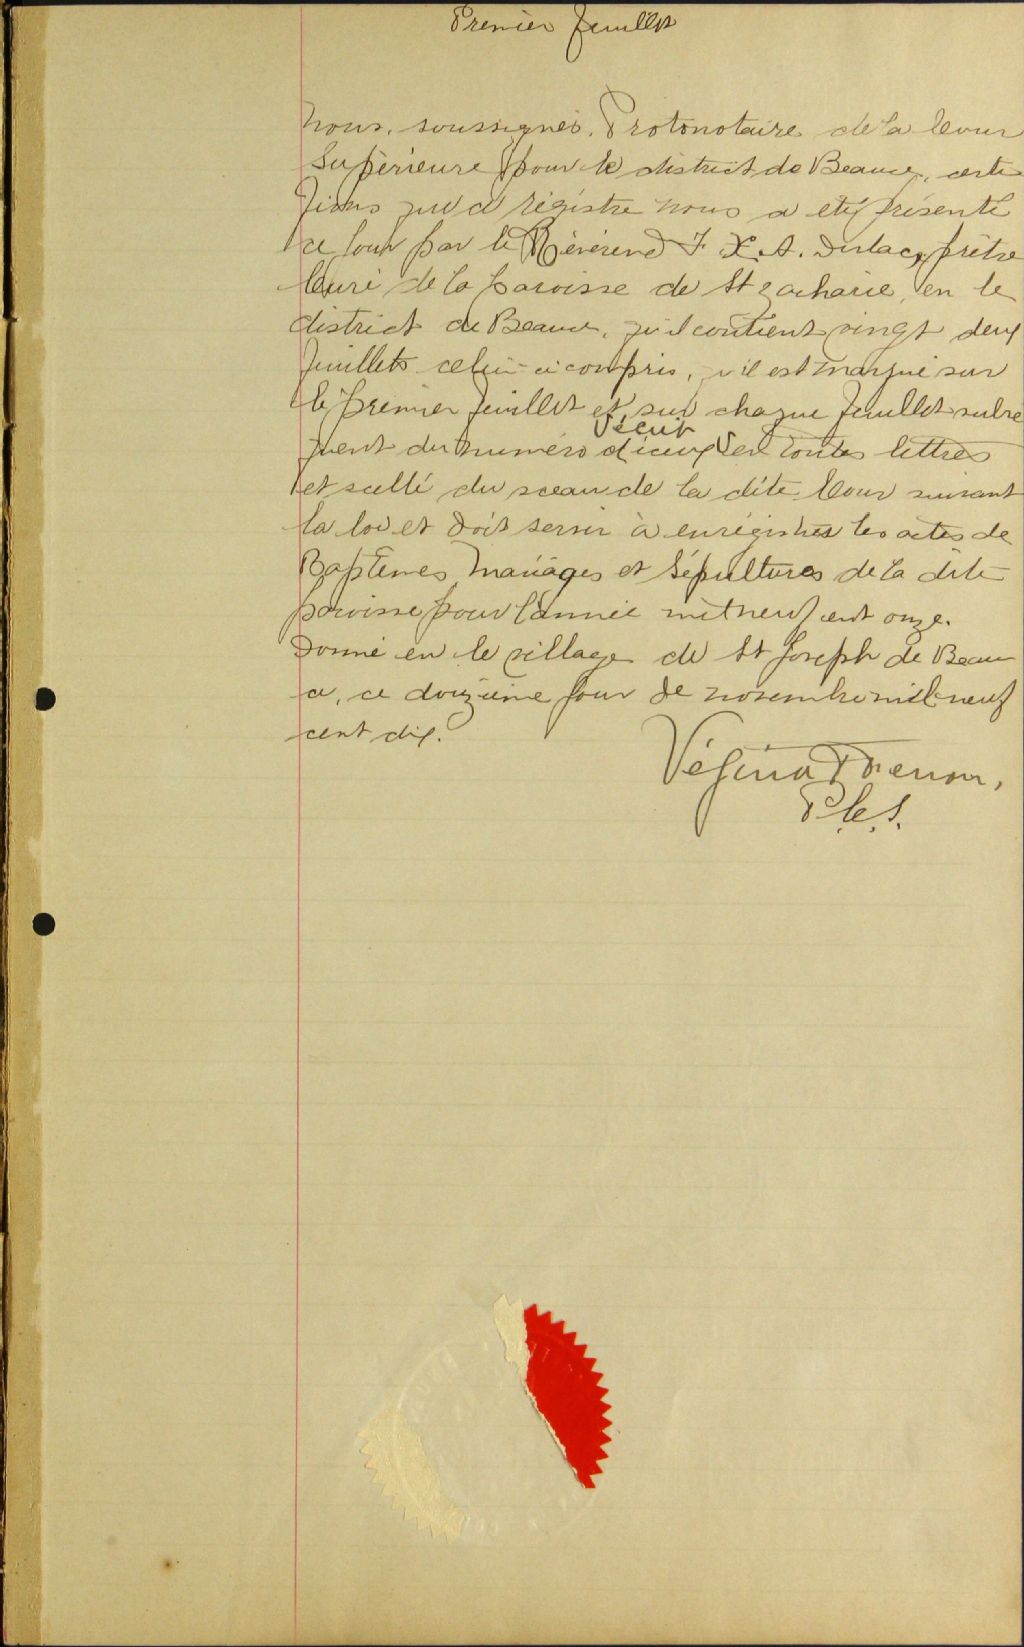 Premier feuillet
Nous, soussignés, Protonotaire de la Cour
Supérieure pour le district de Beauce, certi
fions que ce régistre nous a été présenté
ce jour par le Révérend F. X. A. Dulac, prêtre
Curé de la paroisse de St Zacharie, en le
district de Beauce, qu'il contient vingt deux
feuillets celui-ci compris, qu'il est marqué sur
le premier feuillet et sur chaque feuillet subsé
quent du numéro d'iceux V en toutes lettres
Vécrit
et scellé du sceau de la dite Cour suivant
la loi et doit servir à enrégistrer les actes de
Baptêmes Mariages et Sépultures de la dite
paroisse pour l'année mil neuf cent onze.
Donné en le village de St Joseph de Beau
ce, ce douzième jour de novembre mil neuf
cent dix.
Vézina
P.C.S.